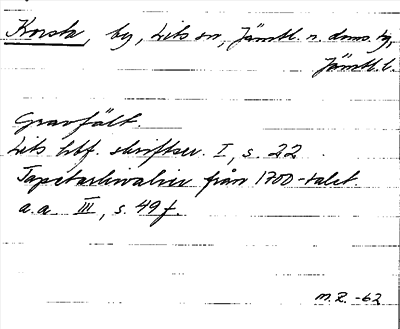 Korsta, by, Lits sn, Jämtl. n. doms. tg,
Jämtl. l.
Gravfält.
Lits hbf. skriftser. I, s. 22
Tapetmålningar från 1700-talet.
a.a. III, s. 49 f.
M.R. -62